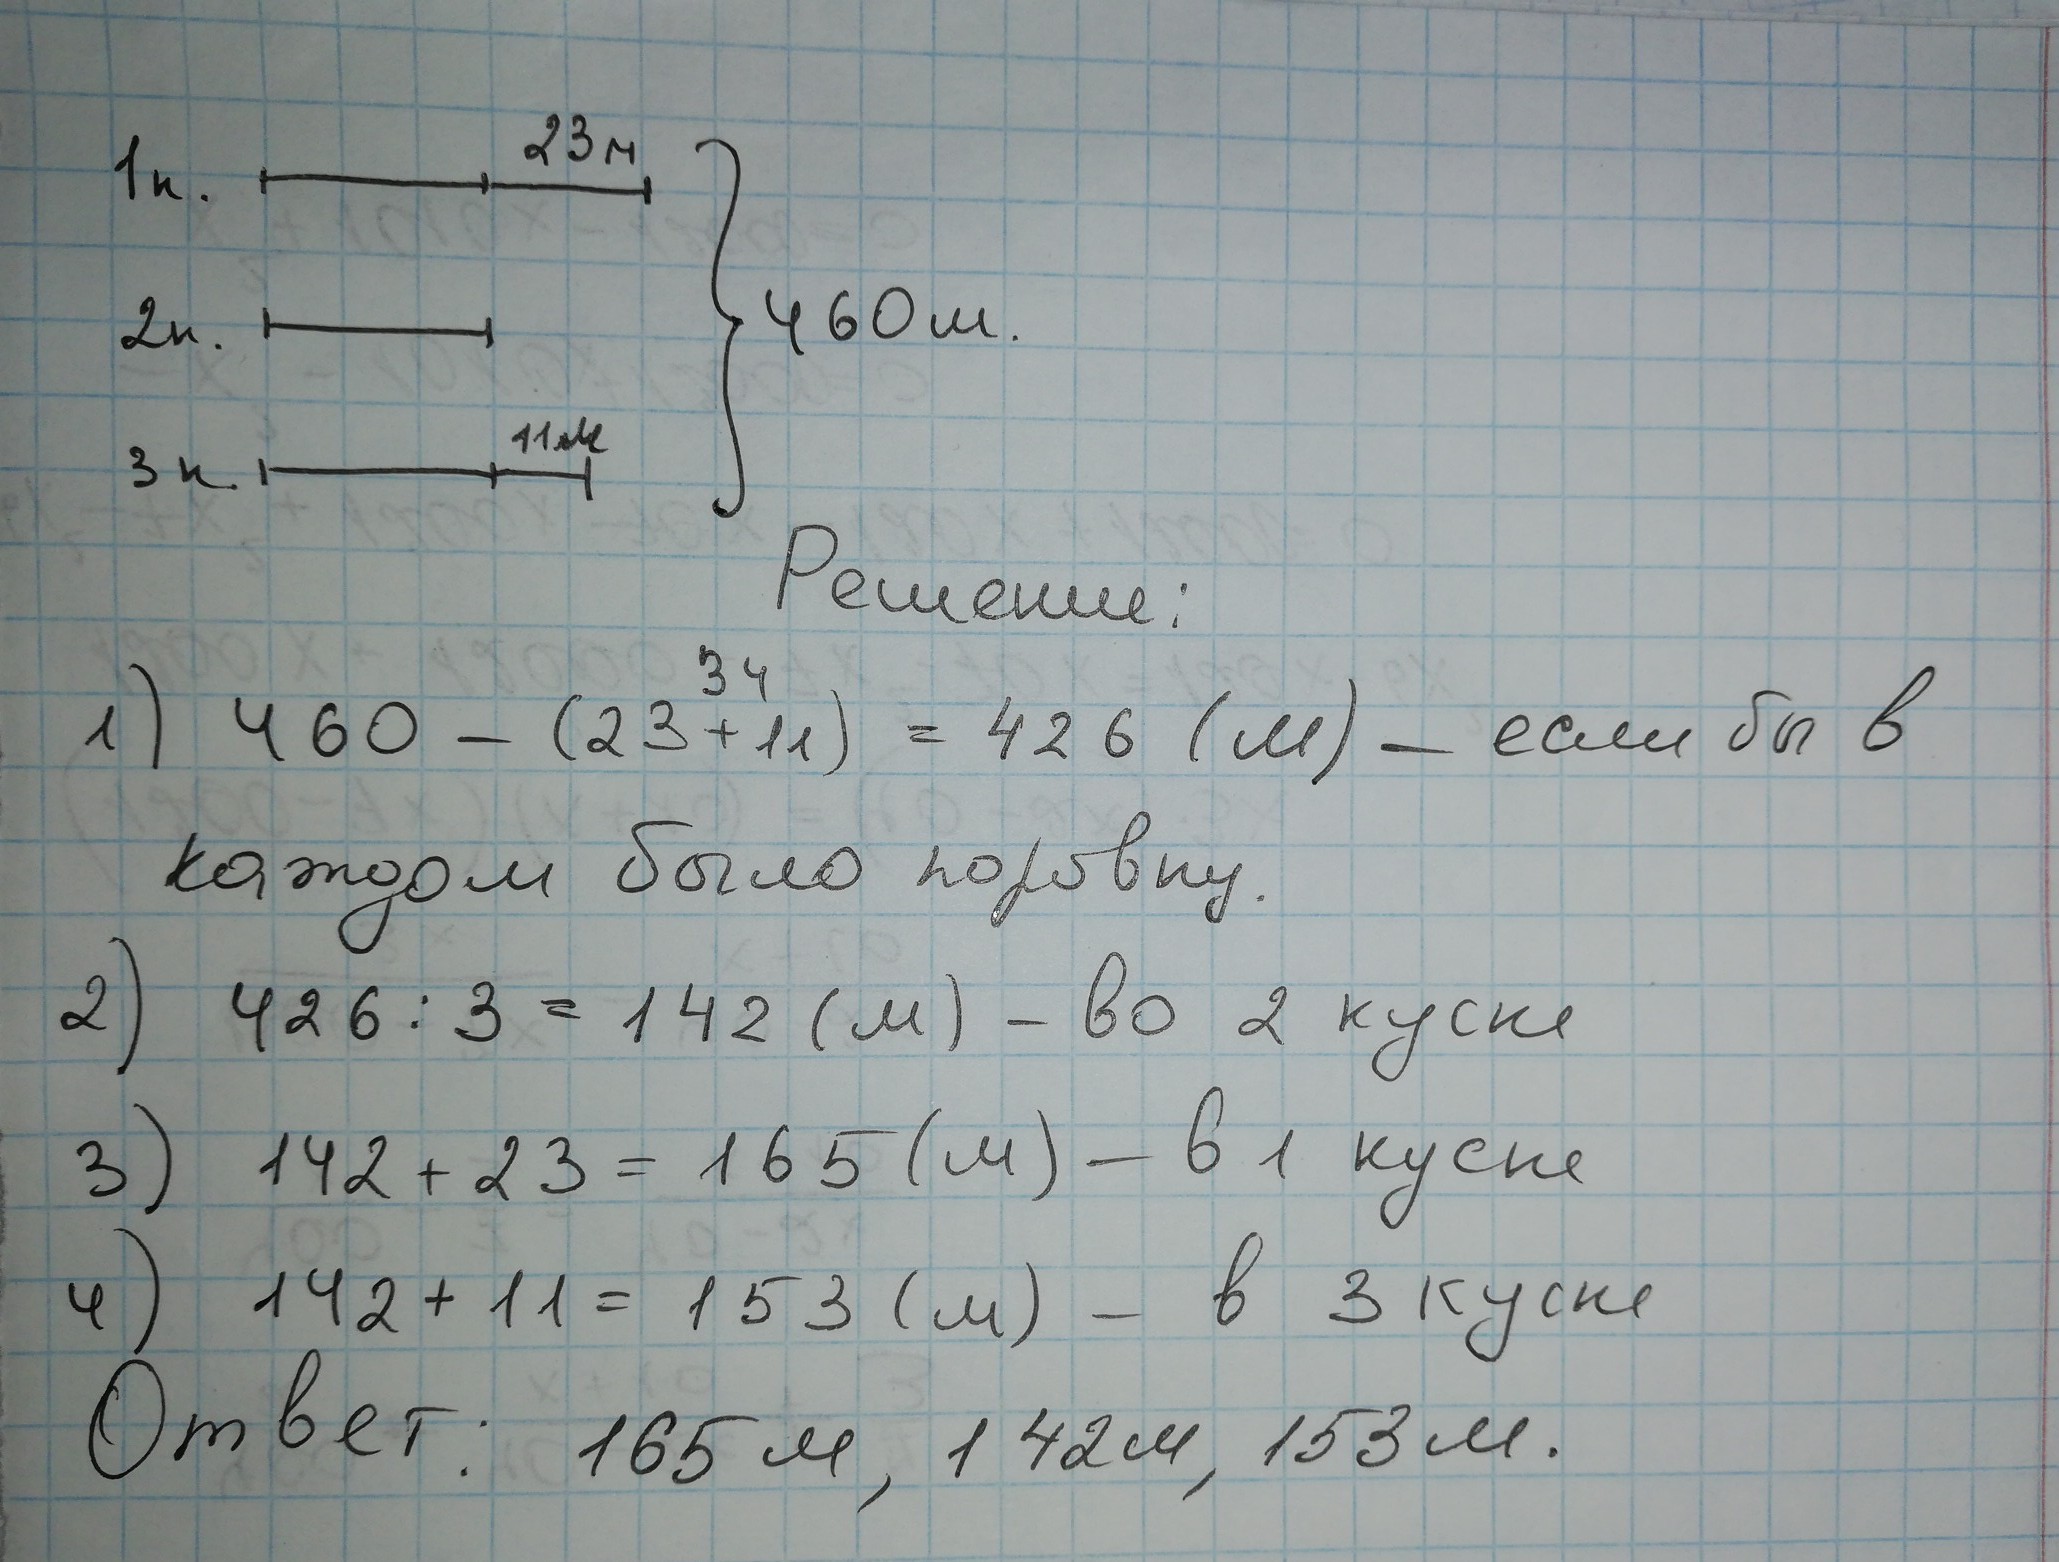 23м
1к.
2к.
460м.
11м
3к.
Решение:
34
1) 460 - (23+11) = 426 (м) - если бы в
каждом было поровну.
2) 426 : 3 = 142 (м) - во 2 куске
3) 142 + 23 = 165 (м) - в 1 куске
4) 142 + 11 = 153 (м) - в 3 куске
Ответ: 165 м, 142м, 153м.